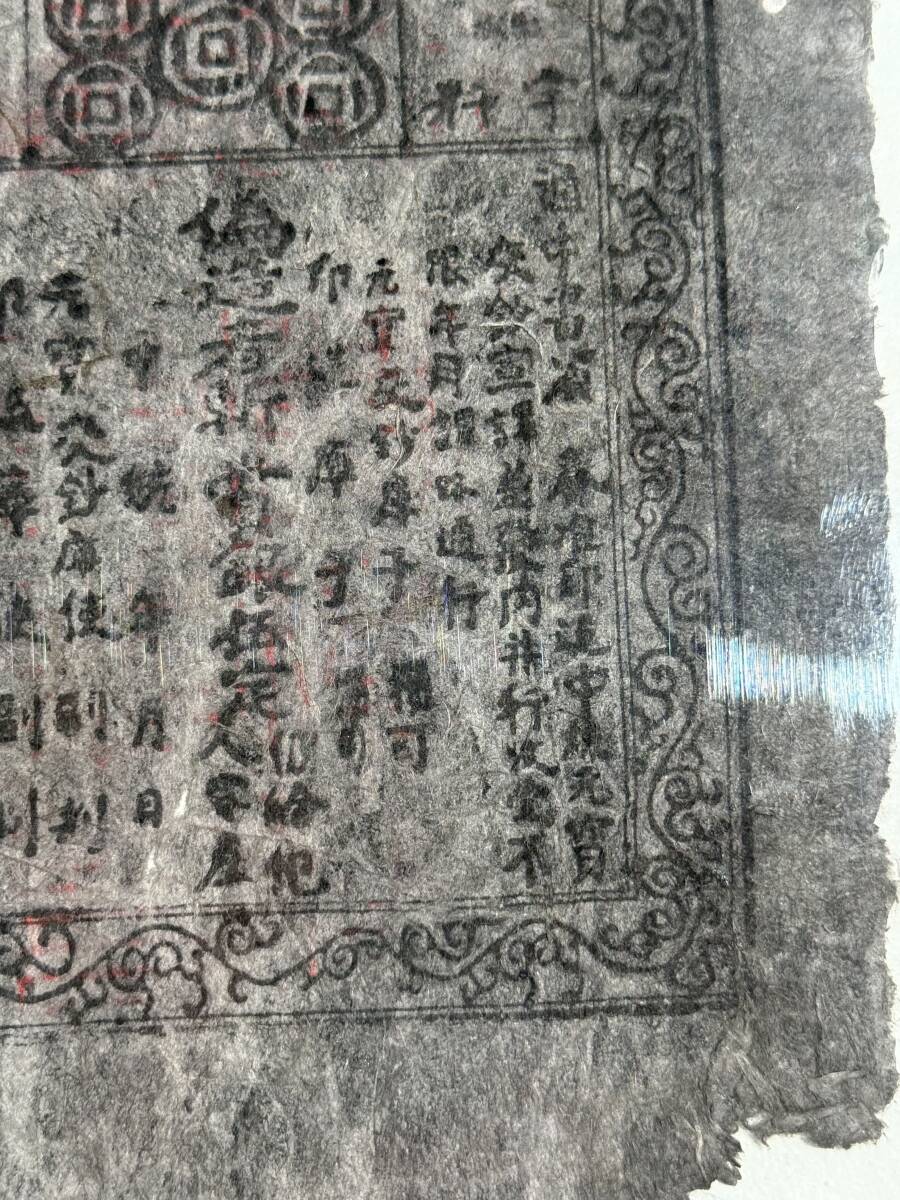 字
料
中書省 奏准印造中統元寶
交鈔宣課差發內并行收受不
限年月諸路通行
元寶交鈔庫子 攢司
印造庫子 攢司
偽造者斬賞銀伍定仍給犯
人家產
中統 年 月 日
元寶交鈔庫使副判
印造庫使副判